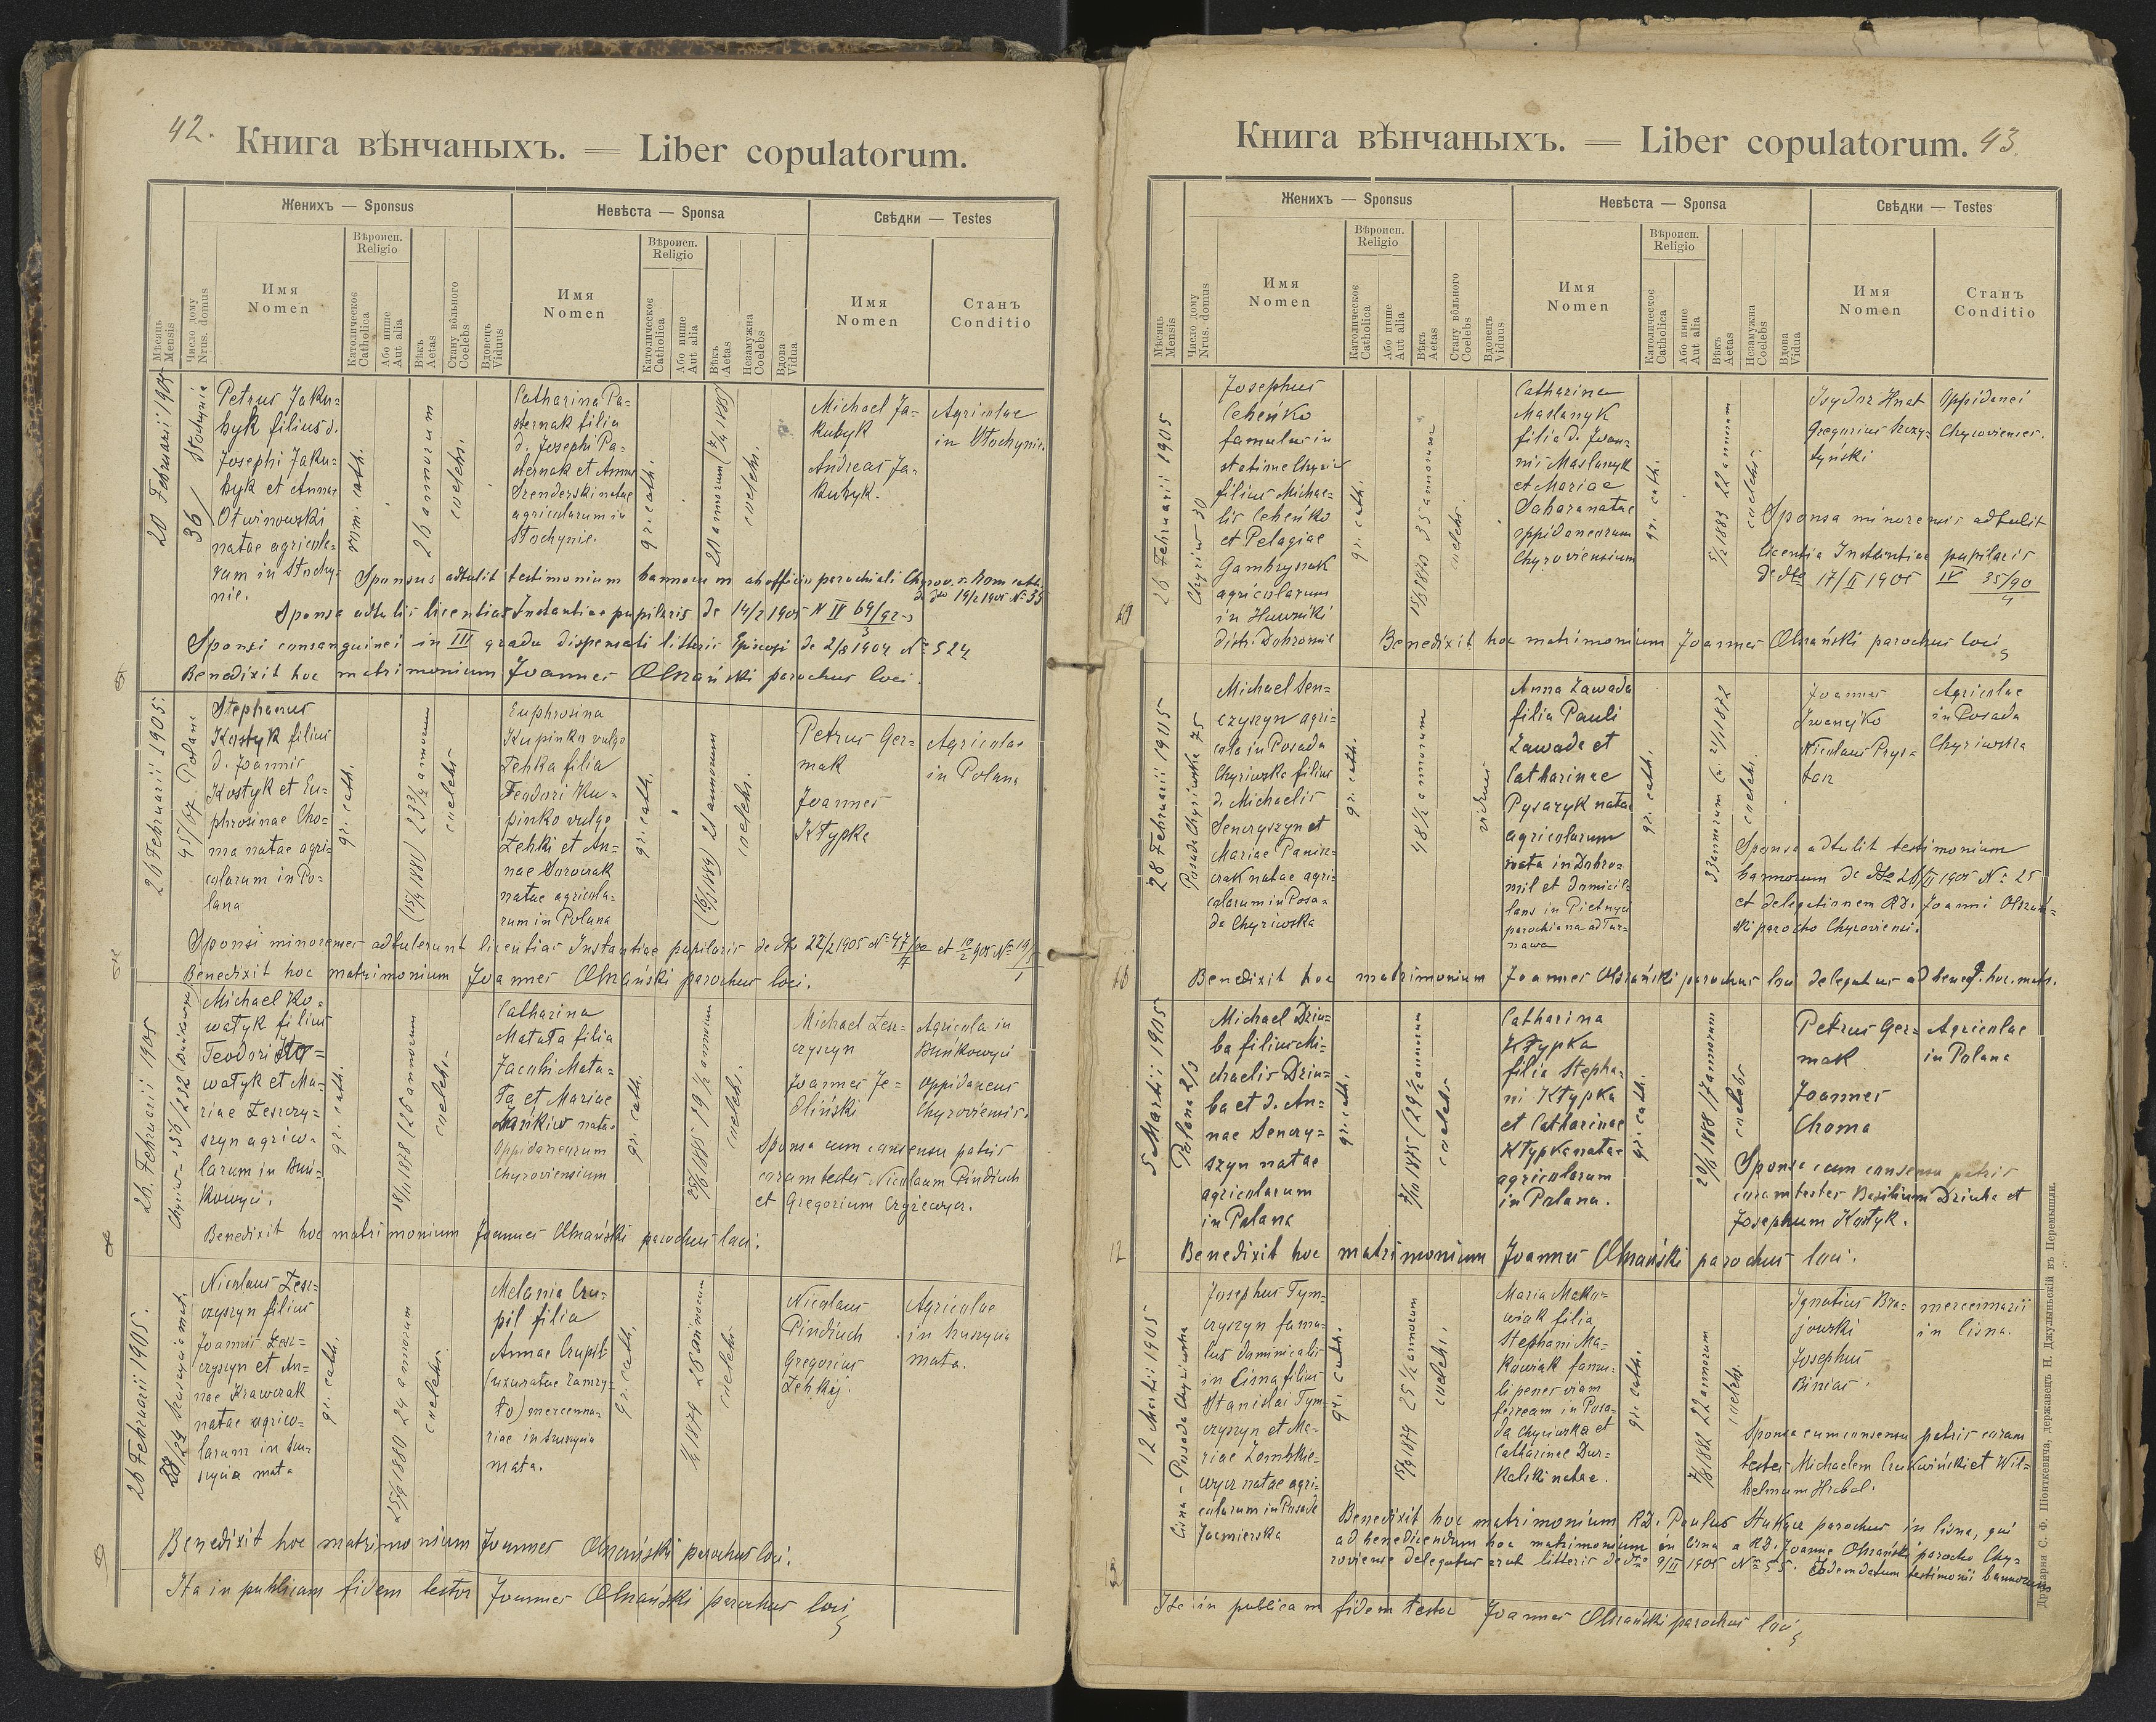 42.
Книга вѣнчаныхъ. — Liber copulatorum.
Женихъ — Sponsus
Невѣста — Sponsa
Свѣдки — Testes
Мѣсяць
Mensis
Число дому
Nrus. domus
Имя
Nomen
Вѣроисп.
Religio
Католическое
Catholica
Або инше
Aut alia
Вѣкъ
Aetas
Стану вольного
Coelebs
Вдовецъ
Viduus
Имя
Nomen
Вѣроисп.
Religio
Католическое
Catholica
Або инше
Aut alia
Вѣкъ
Aetas
Незамужна
Coelebs
Вдова
Vidua
Имя
Nomen
Станъ
Conditio
20 Februarii 1905
36/
Petrus Jaku=
byk filius d.
Josephi Jaku=
byk et Annae
Otwinowski
natae agricola=
rum in Stochy=
nie.
rom. cath.
26 annorum
coelebs.
Catharina Pa=
sternak filia
d. Josephi Pa=
sternak et Annae
Szenderski natae
agricolarum in
Stochynie.
gr. cath.
20 annorum
coelebs.
Michael Ja=
kubyk
Andreas Ja=
kubyk.
Agricolae
in Stochynie.
Sponsus adtulit testimonium bannorum ab officio parochiali Chyrov. r. Rom. cath.
Sponsa adtulit licentias Instantiae pupilaris de 14/2 1905 N IV 69/92
Sponsi consanguinei in III gradu dispensati litteris Episcopi de 2/8 1904 N 524
Benedixit hoc matrimonium Joannes Olszański parochus loci.
26 Februarii 1905.
45/67. Polana
Stephanus
Kostyk filius
d. Joannis
Kostyk et Eu=
phrosinae Cho=
ma natae agri=
colarum in Po=
lana
gr. cath.
coelebs
Euphrosina
Kupinko vulgo
Zehka filia
Feodori Ku=
pinko vulgo
Zehki et An=
nae Worowrak
natae agricola=
rum in Polana
gr. cath.
21 annorum
coelebs.
Petrus Ger=
mak
Joannes
Kłypka
Agricolae
in Polana
Sponsi minorennes adtulerunt licentias Instantiae pupilaris de dto 22/2 1905
Benedixit hoc matrimonium Joannes Olszański parochus loci.
26. Februarii 1905
Michael Ko=
wałyk filius
Teodori Ko=
wałyk et Ma=
riae Leszczy=
szyn agrico=
larum in Buń=
kowyci.
gr. cath.
18/11 1878 (26 annorum
coelebs.
Catharina
Matuła filia
Jacobi Matu=
ła et Mariae
Zańkiw natae
Oppidanearum
Chyroviensium
gr. cath.
19 ½ annorum
coelebs.
Michael Lesz=
czyszyn
Joannes Je=
dliński
Agricola in
Buńkowyci
oppidaneus
Chyroviensis.
Sponsa cum consensu patris
coram testes Nicolaum Pindiuch
et Gregorium
Benedixit hoc matrimonium Joannes Olszański parochus loci.
26 Februarii 1905.
Nicolaus Lesz=
czyszyn filius
Joannis Lesz=
czyszyn et An=
nae Krawczak
natae agrico=
larum in
mała
gr. cath.
24 annorum
coelebs.
Melania Czu=
pil filia
Annae Czupil
mercenna=
riae in
mała.
gr. cath.
1879 26 annorum
coelebs
Nicolaus
Pindiuch
Gregorius
Zehkij.
Agricolae
in
mała.
Benedixit hoc matrimonium Joannes Olszański parochus loci.
Ita in publicam fidem testor Joannes Olszański parochus loci
Книга вѣнчаныхъ. — Liber copulatorum.
43.
Женихъ — Sponsus
Невѣста — Sponsa
Свѣдки — Testes
Мѣсяць
Mensis
Число дому
Nrus. domus
Имя
Nomen
Вѣроисп.
Religio
Католическое
Catholica
Або инше
Aut alia
Вѣкъ
Aetas
Стану вольного
Coelebs
Вдовецъ
Viduus
Имя
Nomen
Вѣроисп.
Religio
Католическое
Catholica
Або инше
Aut alia
Вѣкъ
Aetas
Незамужна
Coelebs
Вдова
Vidua
Имя
Nomen
Станъ
Conditio
26 Februarii 1905
Chyriw 30
Josephus
Cebeńko
famulus in
statione Chyriw
filius Michae=
lis Cebeńko
et Pelagiae
Gambryszak
agricolarum
in Huwniki
distr. Dobromil
gr. cath.
35 annorum
coelebs.
Catharina
Maslanyk
filia d. Joan=
nis Maslanyk
et Mariae
Sahara natae
oppidanearum
Chyroviensium
gr. cath.
1883 22 annorum
coelebs.
Isydor Hnat
Gregorius Szczy=
tyński
Oppidanei
Chyrovienses.
Sponsa minorennis adtulit
licentia Instantiae pupilaris
de dto 17/II 1905 IV 35/90
Benedixit hoc matrimonium Joannes Olszański parochus loci
28 Februarii 1905
Posada Chyriwska 75
Michael Sen=
czyszyn agri=
cola in Posada
Chyriwska filius
d. Michaelis
Senczyszyn et
Mariae Panisz=
czak natae agri=
colarum in Posa=
da Chyriwska
gr. cath.
48 ½ annorum
viduus
Anna Zawada
filia Pauli
Zawada et
Catharinae
Pysaryk natae
agricolarum
nata in Dobro=
mil et domicil=
lans in Pietnyci
parochiana ad Tar=
nawa
gr. cath.
33 annorum
coelebs.
Joannes
Iwanejko
Nicolaus Prys=
tasz
Agricolae
in Posada
Chyriwska
Sponsa adtulit testimonium
bannorum de dto 26/II 1905 N 25
et delegationem RD. Joanni Olszań=
ski parocho Chyroviensi.
Benedixit hoc matrimonium Joannes Olszański parochus loci delegatus ad bened. hoc. matr.
5 Martii 1905
Polana 2/3
Michael Dziu=
ba filius Mi=
chaelis Dziu=
ba et d. An=
nae Senczy=
szyn natae
agricolarum
in Polana
gr. cath.
1875 (29 ½ annorum
coelebs
Catharina
Kłypka
filia Stepha=
ni Kłypka
et Catharinae
Kłypka natae
agricolarum
in Polana.
gr. cath.
1888 17 annorum
coelebs
Petrus Ger=
mak
Joannes
Choma
Agricolae
in Polana
Sponsa cum consensu patris
coram testes Basilium Dziuba et
Josephum Kostyk.
12
Benedixit hoc matrimonium Joannes Olszański parochus loci.
12 Martii 1905
Lisna - Posada Chyriwska
Josephus Tym=
czyszyn famu=
lus dominicalis
in Lisna filius
Stanislai Tym=
czyszyn et Ma=
riae Zombkie=
wycz natae agri=
colarum in Posada
Jacmierska
gr. cath.
1879 25 ½ annorum
coelebs.
Maria Mako=
wiak filia
Stephani Ma=
kowiak famu=
li penes viam
ferream in Posa=
da Chyriwska et
Catharinae Dur=
kalski natae.
gr. cath.
1882 22 annorum
coelebs.
Ignatius Bra=
jowski
Josephus
Binias.
mercennarii
in Lisna.
Sponsa cum consensu patris coram
testes Michaelem et Wil=
helmum Hrabal.
Benedixit hoc matrimonium RD. Paulus Stukacz parochus in Lisna, qui
ad benedicendum hoc matrimonium in Lisna a RD. Joanne Olszański parocho Chy=
roviense delegatus erat litteris de dto 9/II 1905 N 55. Eodem datum testimonii bannorum
Ita in publicam fidem testor Joannes Olszański parochus loci
Друкарня С. Ф. Піонткевича, державецъ И. Джулыньскій въ Перемышли.